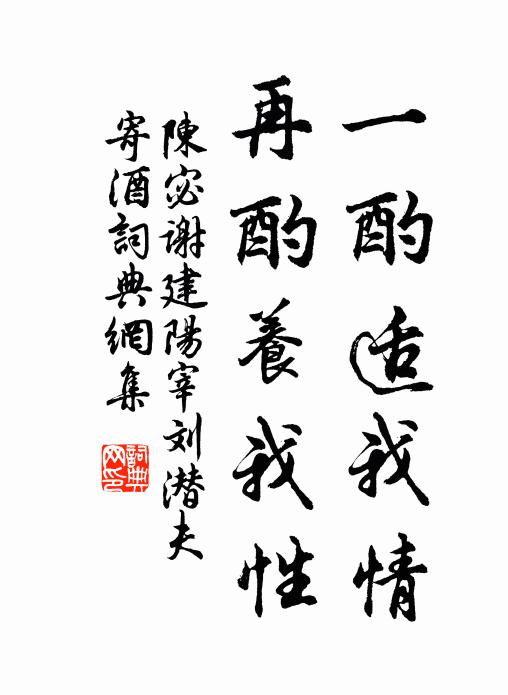 一酌适我情
再酌養我性
陳宓谢建陽宰刘潜夫
寄酒詞典網集
詞典网印